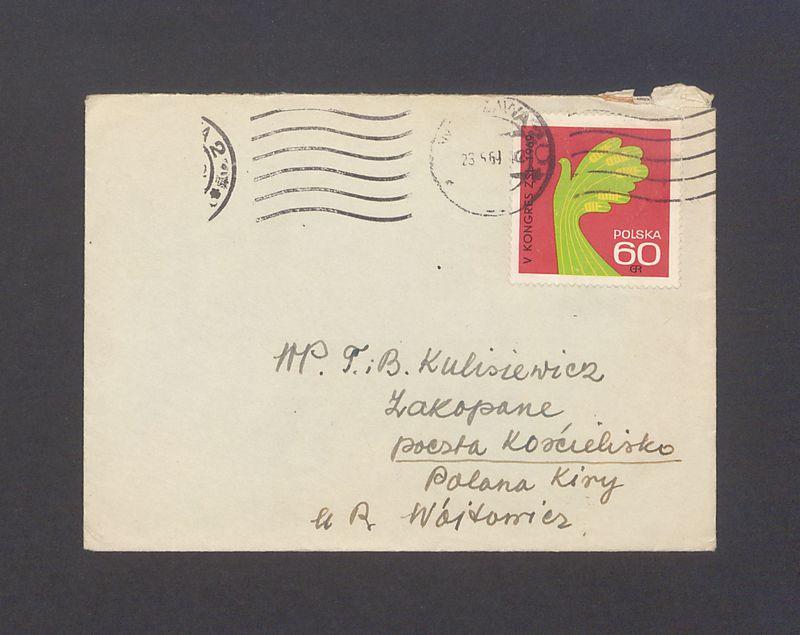 V KONGRES ZSL 1969
POLSKA
60
GR
WP. T. i B. Kulisiewicz
Zakopane
poczta Kościelisko
Polana Kiry
u R. Wójtowicz